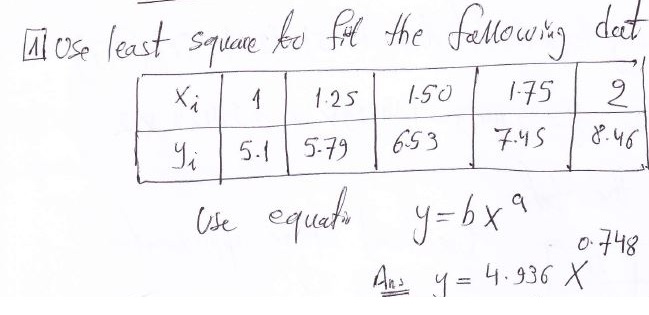 1 Use least square to fit the following dat
Xi 1 1.25 1.50 1.75 2
yi 5.1 5.79 6.53 7.45 8.46
Use equati y=bx^a
Ans y = 4.936 X^0.748